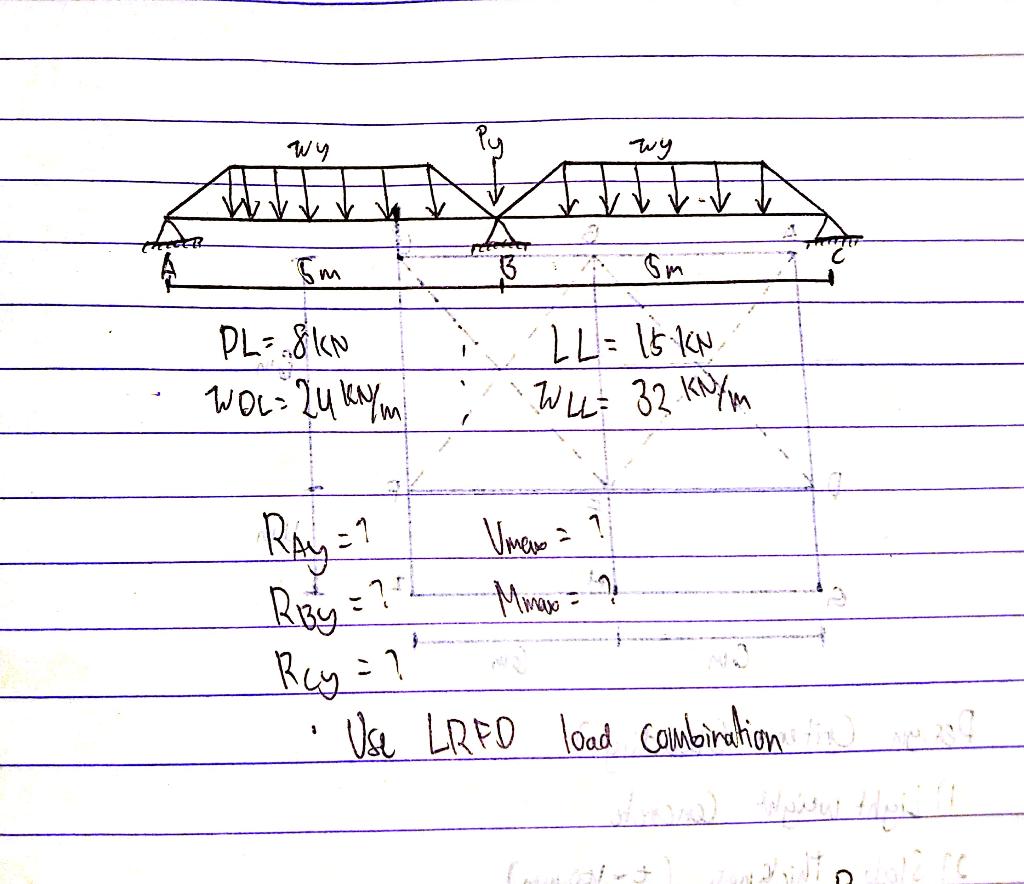 wy Py wy
A 5m B 5m C
DL= 8 KN ; LL= 15 KN
WDL= 24 KN/m ; WLL= 32 KN/m
RAy = ? Vmax = ?
RBy = ? Mmax = ?
RCy = ?
• Use LRFD load combination